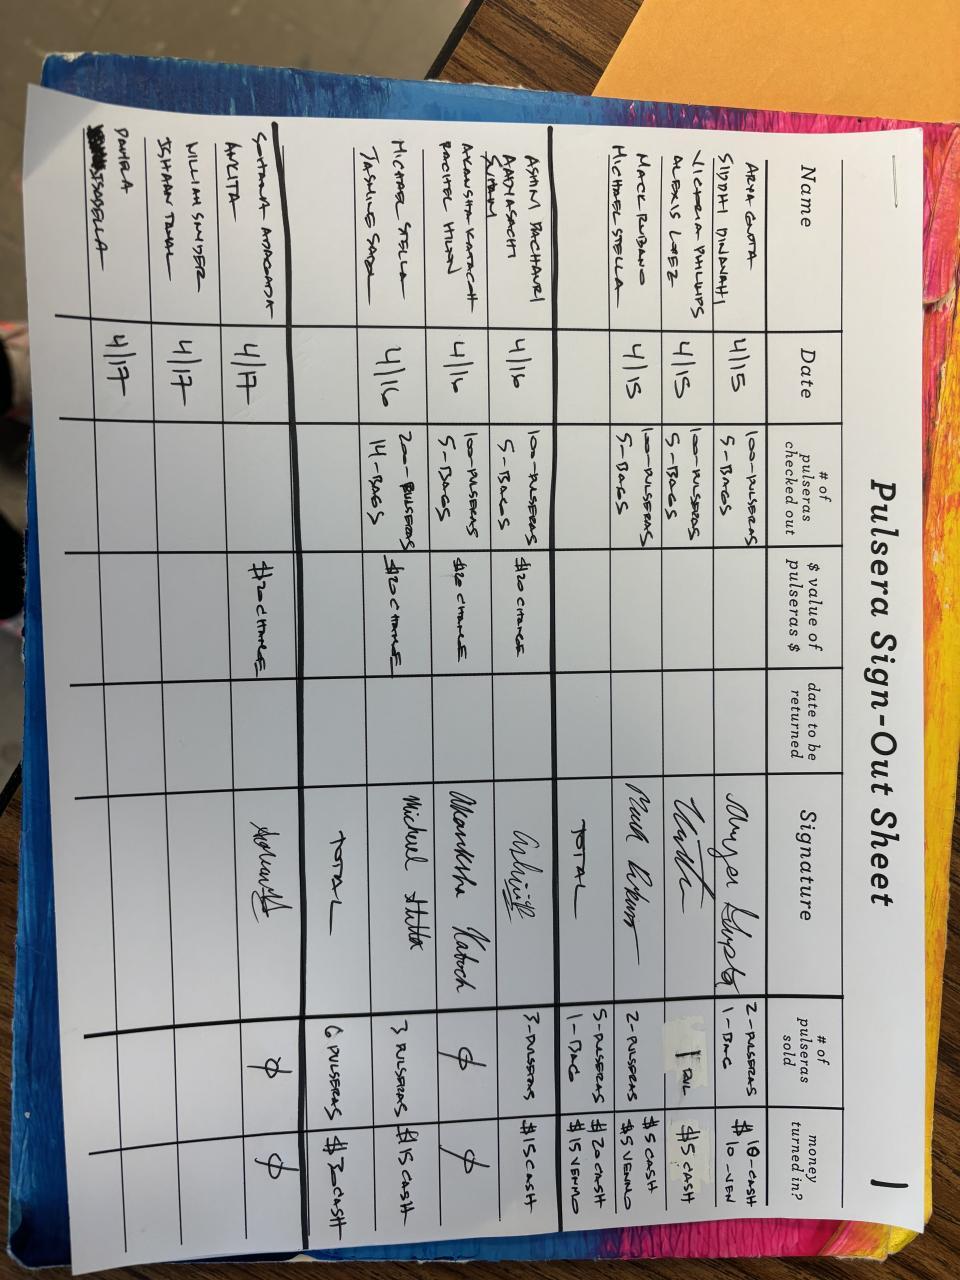 Pulsera Sign-Out Sheet
1
Name
Date
# of
pulseras
checked out
$ value of
pulseras $
date to be
returned
Signature
# of
pulseras
sold
money
turned in?
ARYA GUPTA
SIDDHI DINAVAHI
4/15
100-PULSERAS
5-BAGS
Arya Gupta
2-PULSERAS
1-BAG
$10-CASH
$10-VEN
VICTORIA PHILLIPS
ALEXIS LOPEZ
4/15
100-PULSERAS
5-BAGS
1 PUL
$5 CASH
MACK RUBANO
MICHAEL STELLA
4/15
100-PULSERAS
5-BAGS
2-PULSERAS
$5 CASH
$5 VENMO
TOTAL
5-PULSERAS
1-BAG
$20 CASH
$15 VENMO
ASHIM PACHAURI
AADYASACHI
4/16
100-PULSERAS
5-BAGS
$20 CHANGE
3-PULSERAS
$15 CASH
AKANSHA KATOCH
RACHEL
4/16
100-PULSERAS
5-BAGS
$20 CHANGE
Akanksha Katoch
∅
∅
MICHAEL STELLA
JASMINE
4/16
200-PULSERAS
14-BAGS
$20 CHANGE
Michael Stella
3 PULSERAS
$15 CASH
TOTAL
6 PULSERAS
$30 CASH
ADAGADA
ANKITA
4/17
$20 CHANGE
∅
∅
WILLIAM SNYDER
ISHAAN
4/17
DANIELA
ISABELLA
4/17